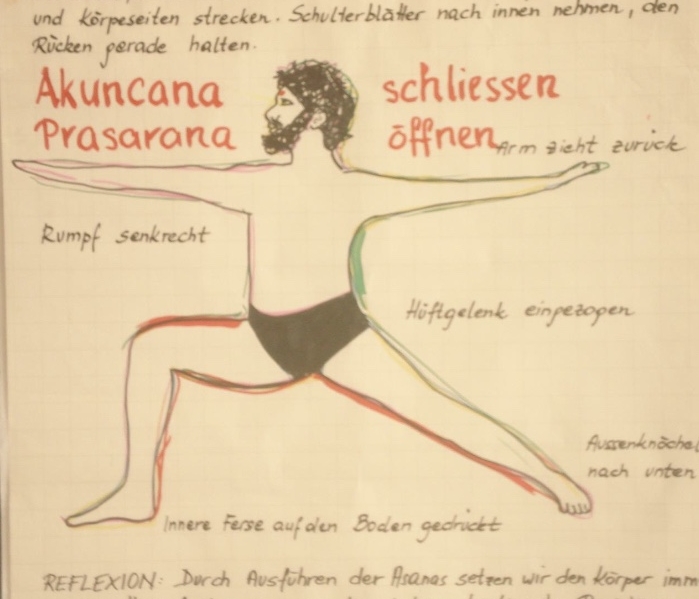 und körpeseiten strecken. Schulterblätter nach innen nehmen, den
Rücken gerade halten.
Akuncana schliessen
Prasarana öffnen
Arm zieht zurück
Rumpf senkrecht
Hüftgelenk eingezogen
Aussenknöchel
nach unten
Innere Ferse auf den Boden gedrückt
REFLEXION: Durch Ausführen der Asanas setzen wir den Körper imm